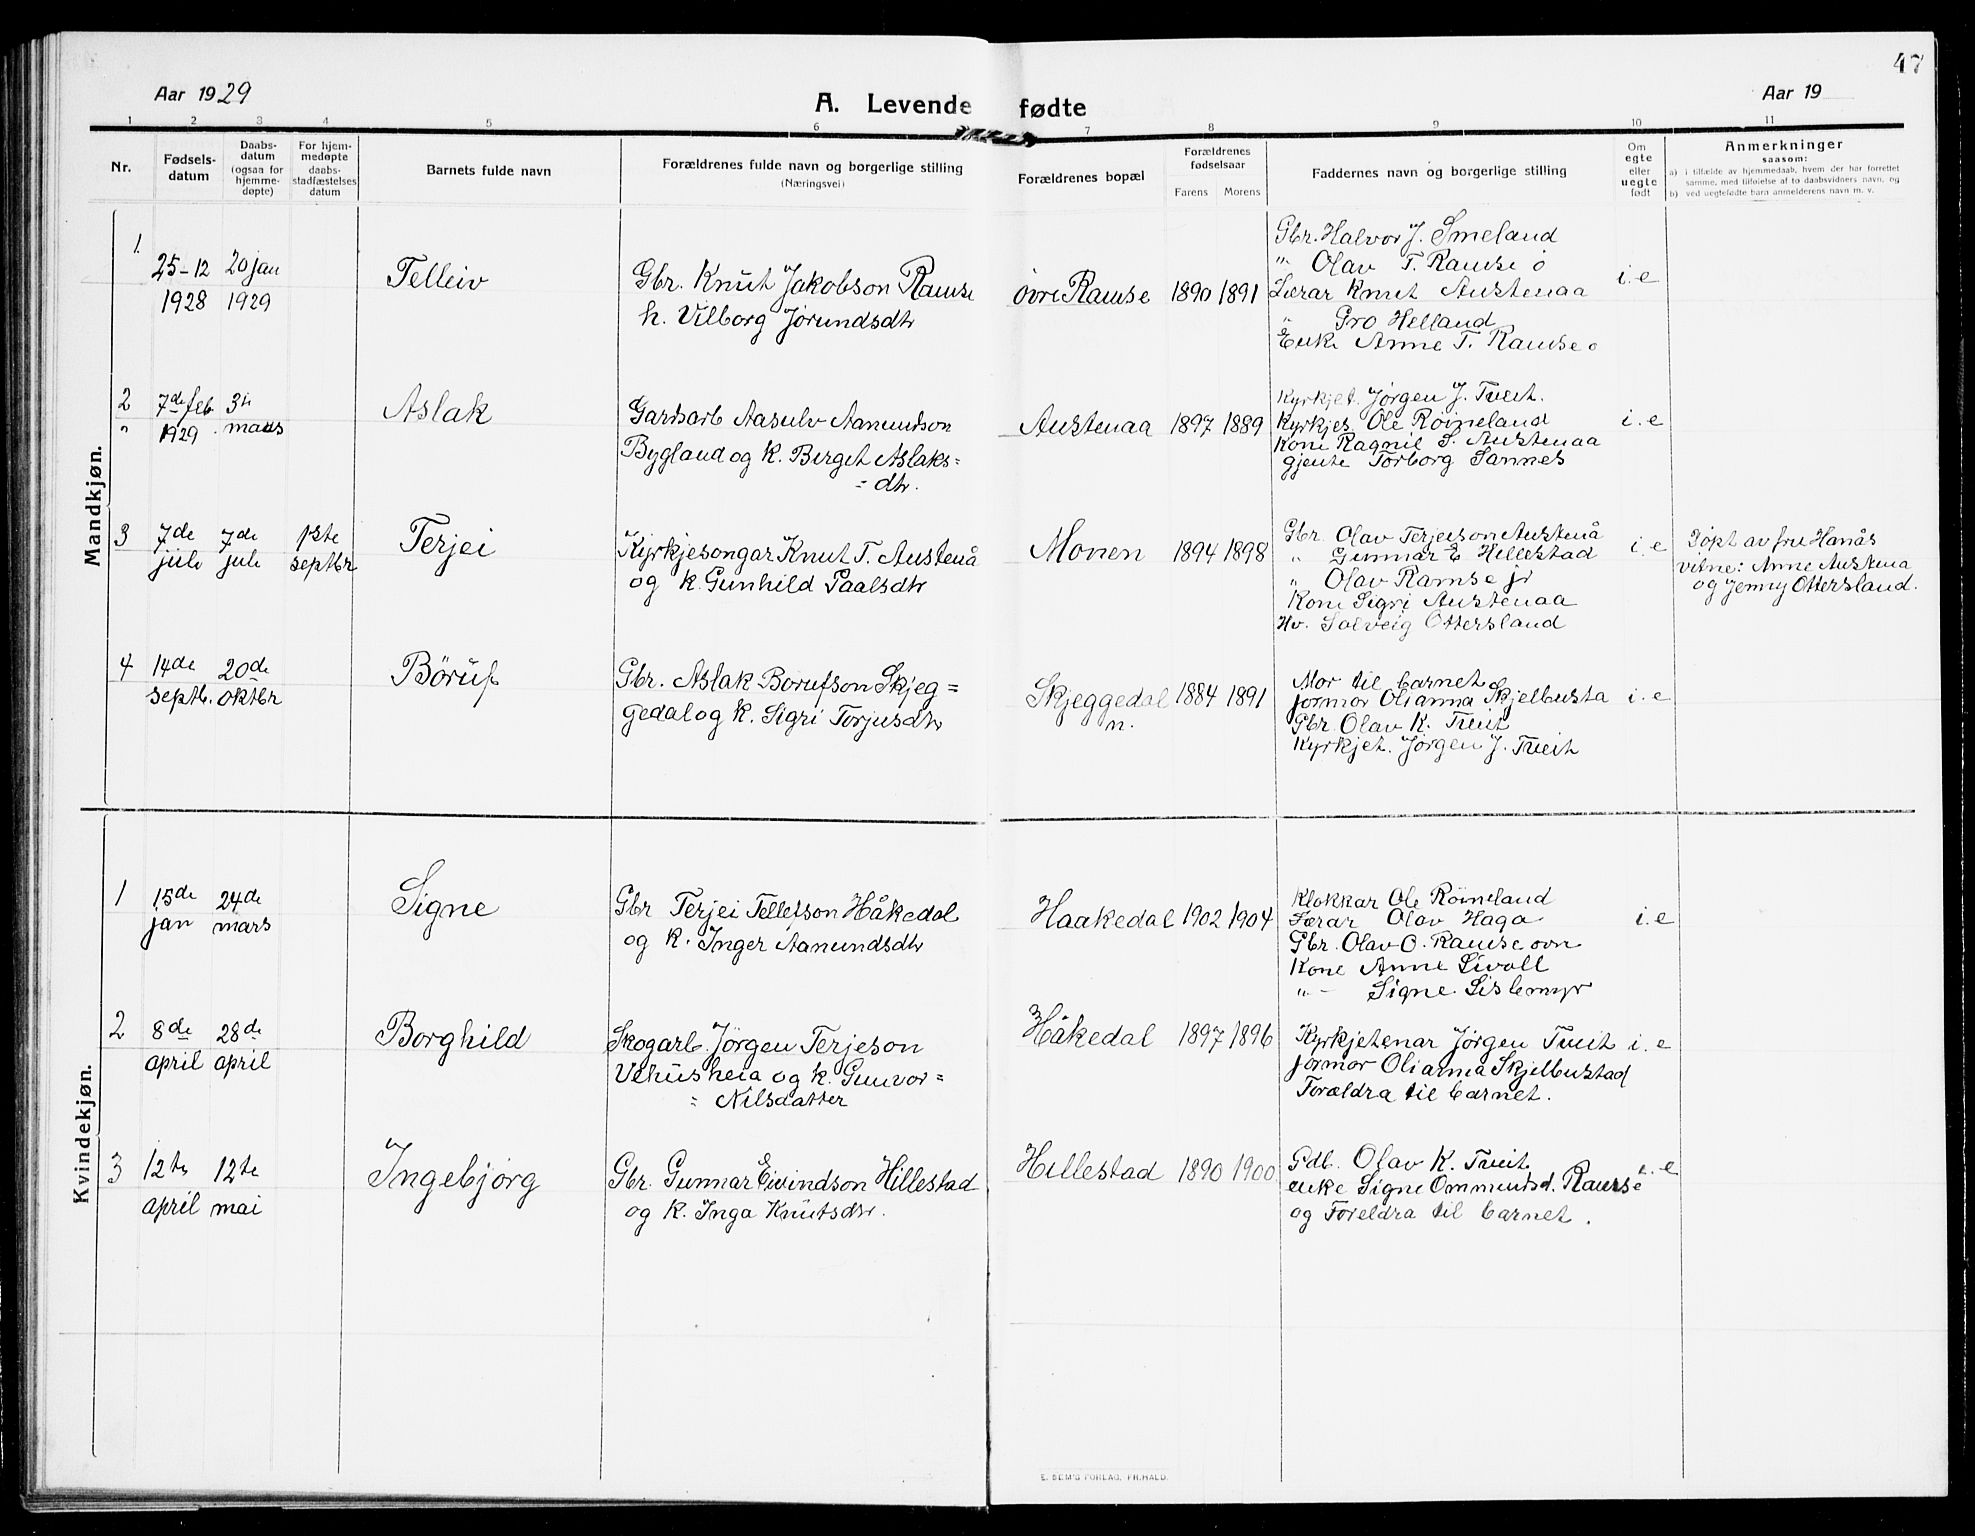 47
Aar 1929
A. Levende fødte
Aar 19
1 2 3 4 5 6 7 8 9 10 11
Nr.
Fødsels-
datum
Daabs-
datum
(ogsaa for
hjemme-
døpte)
For hjem-
medøpte
daabs-
stadfæstelses
datum
Barnets fulde navn
Forældrenes fulde navn og borgerlige stilling
(Næringsvei)
Forældrenes bopæl
Forældrenes
fødselsaar
Farens Morens
Faddernes navn og borgerlige stilling
Om
egte
eller
uegte
født
Anmerkninger
saasom:
a) i tilfælde av hjemmedaab, hvem der har forrettet
samme, med tilføielse af to daabsvidners navn, og
b) ved uegtefødte barn anmelderens navn m. v.
Mandkjøn.
1.
25-12
1928
20 jan
1929
Telleiv
Gbr. Knut Jakobson Ramse
h. Vilborg Jørundsdtr
øvre Ramse
1890 1891
Gbr. Halvor J. Smeland
" Olav T. Ramse ø
Lærar Knut Austenaa
" Gro Helland
Enke Anne T. Ramse ø
i. e
2
"
7de feb
1929
3
mars
Aslak
Gardsarb Aasulv Aamundson
Bygland og k. Berget Aslaks=
= dtr.
Austenaa
1897 1889
Kyrkjet. Jørgen J. Tveit.
Kyrkjes Ole Røineland
Kone Ragnil S. Austenaa
gjente Torborg Sannes
i. e
3
7de
juli
7de
juli
1ste
septbr
Terjei
Kyrkjesongar Knut T. Austenå
og k. Gunhild Paalsdtr
Monen
1894 1898
Gbr. Olav Terjeson Austenå
" Gunnar E Hillestad
" Olav Ramse jr
Kone Sigri Austenaa
Hv. Solveig Ottersland
i. e
Døpt av fru Hanås
vitne: Anne Austena
og Jenny Ottersland.
4
14de
septb.
20de
oktbr
Børuf
Gbr. Aslak Borufson Skjeg=
gedal og k. Sigri Torjusdtr
Skjeggedal
n.
1884 1891
Mor til barnet
jormor Olianna Skjelbusta
Gbr. Olav K. Tveit
Kyrkjet. Jørgen J. Tveit
i. e
Kvindekjøn.
1
15de
jan
24de
mars
Signe
Gbr Terjei Tellefson Håkedal
og k. Inger Aamundsdtr
Haakedal
1902 1904
Klokkar Ole Røineland
Lærar Olav Haga
Gbr. Olav O. Ramse øvr
Kone Anne Livoll
" - Signe Lislemyr
i. e
2
8de
april
28de
april
Borghild
Skogarb. Jørgen Terjeson
Vehusheia og k. Gunvor =
= Nilsdatter
Håkedal
1897 1896
Kyrkjetenar Jørgen Tveit
jormor Olianna Skjelbustad
Forældra til barnet.
i. e
3
12te
april
12te
mai
Ingebjørg
Gbr. Gunnar Eivindson Hillestad
og k. Inga Knutsdtr.
Hillestad
1890 1900
Gdb. Olav K. Tveit
enke Signe Ommundsd. Ramse
og Foreldra til barnet.
i. e
E. SEM'S FORLAG, FR.HALD.